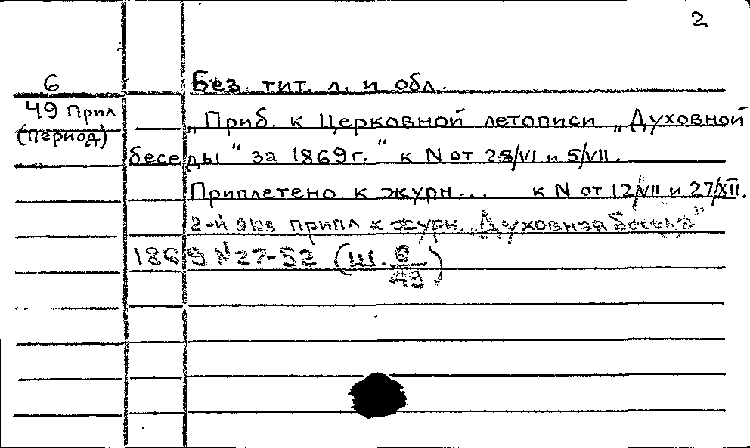 2
6
49 Прил
(период)
Без. тит. л. и обл.
„Приб. к Церковной летописи „Духовной
беседы“ за 1869 г.“ к N от 28/VI и 5/VII.
Приплетено к журн... к N от 12/VII и 27/XII.
2-й экз припл к журн. „Духовная беседа“
1869 N 27-52 (Ш. 6/49)